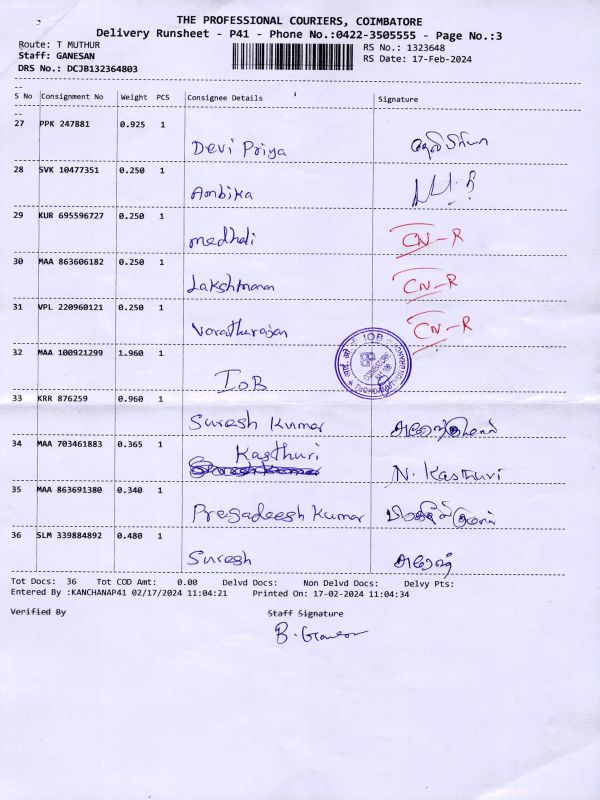 THE PROFESSIONAL COURIERS, COIMBATORE
Delivery Runsheet - P41 - Phone No.:0422-3505555 - Page No.:3
Route: T MUTHUR
RS No.: 1323648
Staff: GANESAN
RS Date: 17-Feb-2024
DRS No.: DCJB132364803
S No Consignment No Weight PCS Consignee Details Signature
27 PPK 247881 0.925 1
Devi Priya தேவிப்ரியா
28 SVK 10477351 0.250 1
Ambika
29 KUR 695596727 0.250 1
CN-R
30 MAA 863606182 0.250 1
Lakshmanan CN-R
31 VPL 220960121 0.250 1
Varatharajan CN-R
32 MAA 100921299 1.960 1
IOB
IOB
33 KRR 876259 0.960 1
Suresh Kumar சுரேஷ்குமார்
34 MAA 703461883 0.365 1
Kasthuri
N. Kasthuri
35 MAA 863691380 0.340 1
Pregadeesh Kumar
36 SLM 339884892 0.480 1
Suresh சுரேஷ்
Tot Docs: 36 Tot COD Amt: 0.00 Delvd Docs: Non Delvd Docs: Delvy Pts:
Entered By :KANCHANAP41 02/17/2024 11:04:21 Printed On: 17-02-2024 11:04:34
Verified By Staff Signature